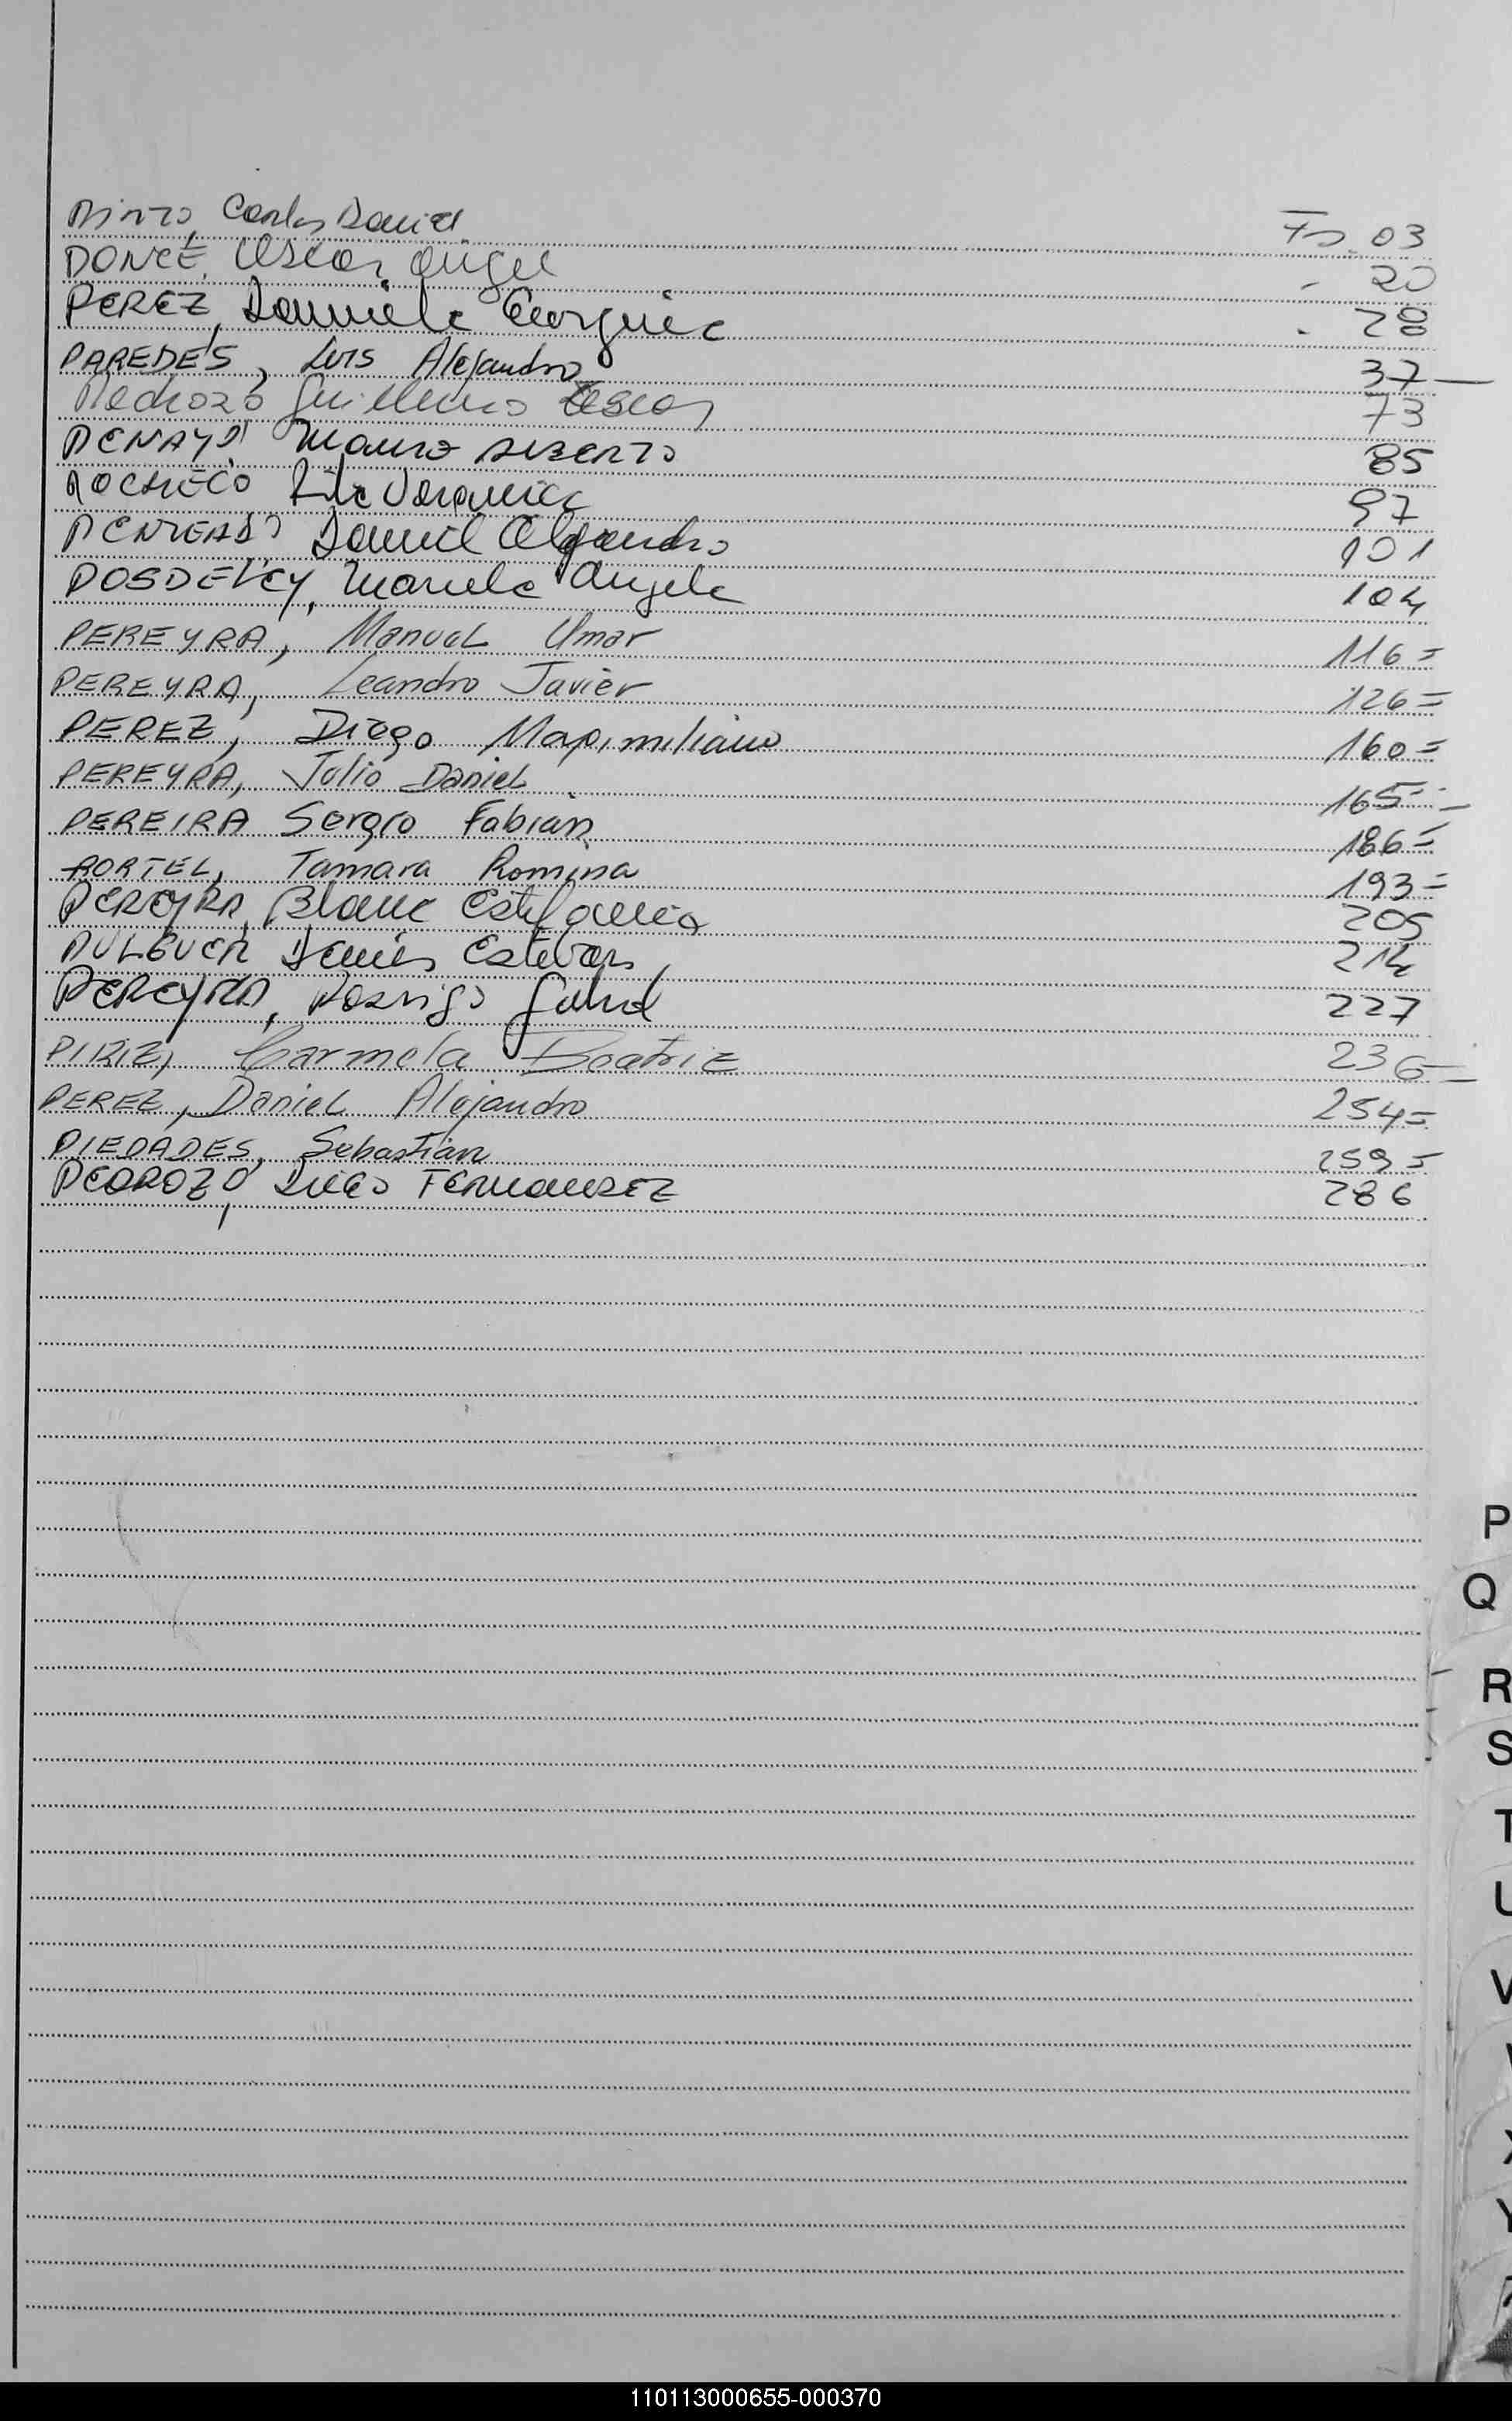 PINTO, Carlos Daniel Fs. 03
PONCE, Oscar Angel - 20
PEREZ, Daniela Georgina - 28
PAREDES, Luis Alejandro 37-
Pedrozo Guillermo Oscar 73
PENAYO Mauro ALBERTO 85
PACHECO Rita Veronica 97
Daniel Alejandro 101
POSDELEY, Mariela Angela 104
PEREYRA, Manuel Omar 116=
PEREYRA, Leandro Javier 126=
PEREZ, Diego Maximiliano 160=
PEREYRA, Julio Daniel 165=
PEREIRA Sergio Fabian 186=
PORTEL, Tamara Romina 193=
PEREYRA, Blanc Estefania 205
Denis Esteban 214
PEREYRA, Rodrigo Gabriel 227
PIRIZ, Carmela Beatriz 236=
PEREZ, Daniel Alejandro 254=
PIEDADES, Sebastián 259=
PEDROZO, DIEGO FERNANDEZ 286
P
Q
R
S
T
U
V
X
Y
110113000655-000370